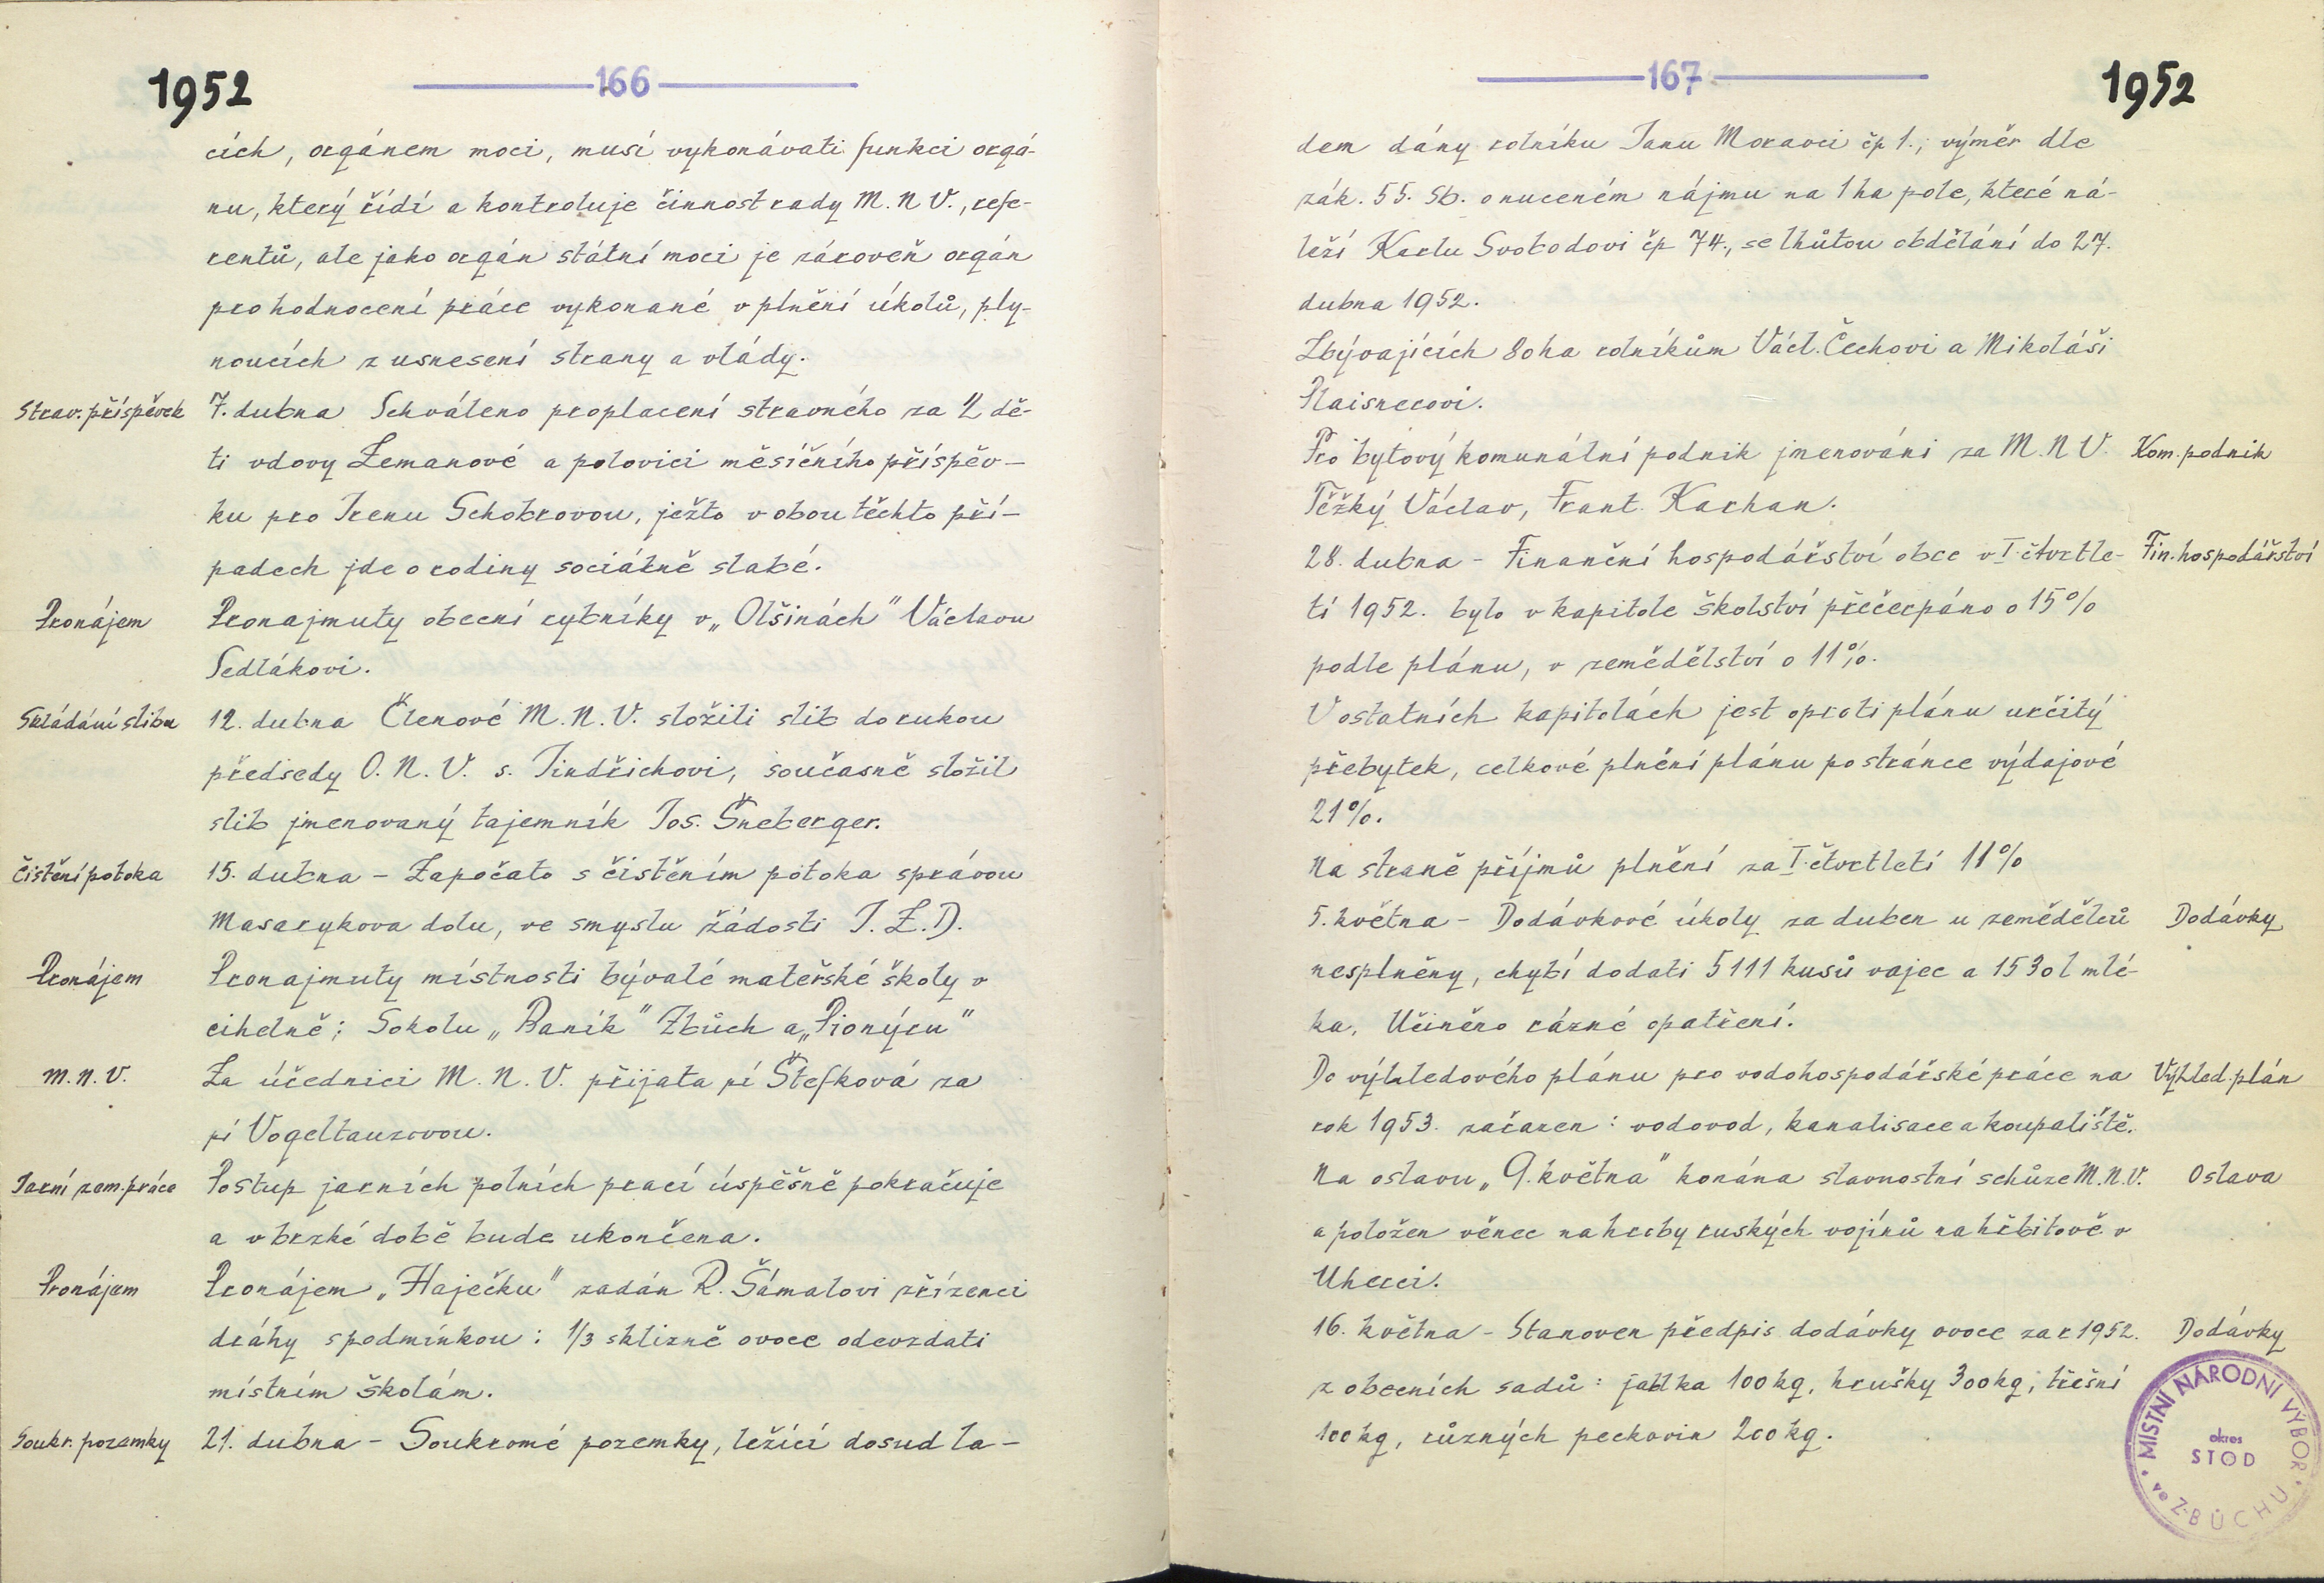 1952
166
cích, orgánem moci, musí vykonávati funkci orgá-
nu, který řídí a kontroluje činnost rady M. N V., refe-
rentů, ale jako orgán státní moci je zároveň orgán
pro hodnocení práce vykonané v plnění úkolů, ply-
noucích z usnesení strany a vlády.
Strav. příspěvek 7. dubna Schváleno proplacení stravného za 2 dě-
ti vdovy Zemanové a polovici měsíčního příspěv-
ku pro Irenu Schobrovou, ježto v obou těchto pří-
padech jde o rodiny sociálně slabé.
Pronájem Pronajmuty obecní rybníky v „Olšinách" Václavu
Sedlákovi.
Skládání slibu 12. dubna Členové M. N. V. složili slib do rukou
předsedy O. N. V. s. Jindřichovi, současně složil
slib jmenovaný tajemník Jos. Šneberger.
Čistění potoka 15. dubna - Započato s čistěním potoka správou
Masarykova dolu, ve smyslu žádosti J. Z. D.
Pronájem Pronajmuty místnosti bývalé mateřské školy v
cihelně; Sokolu „Baník" Zbůch a „Pionýru"
M. N. V. Za účednici M. N. V. přijata pí Štefková za
pí Vogeltanzovou.
Jarní zem. práce Postup jarních polních prací úspěšně pokračuje
a v brzké době bude ukončena.
Pronájem Pronájem „Haječku" zadán R. Šámalovi zřízenci
dráhy s podmínkou: 1/3 sklizně ovoce odevzdati
místním školám.
Soukr. pozemky 21. dubna - Soukromé pozemky, ležící dosud la-
167
1952
dem dány rolníku Janu Moravci čp 1.; výměr dle
zák. 55. Sb. o nuceném nájmu na 1 ha pole, které ná-
leží Karlu Svobodovi čp 74., se lhůtou obdělání do 27.
dubna 1952.
Zbývajících 80 ha rolníkům Václ. Čechovi a Mikoláši
Plaisnerovi.
Pro bytový komunální podnik jmenováni za M. N V. Kom. podnik
Těžký Václav, Frant. Karhan.
28. dubna - Finanční hospodářství obce v I. čtvrtle- Fin. hospodářství
tí 1952. bylo v kapitole školství přečerpáno o 15%
podle plánu, v zemědělství o 11%.
V ostatních kapitolách jest oproti plánu určitý
přebytek, celkové plnění plánu po stránce výdajové
21%.
Na straně příjmů plnění za I. čtvrtletí 11%
5. května - Dodávkové úkoly za duben u zemědělců Dodávky
nesplněny, chybí dodati 5111 kusů vajec a 1530 l mlé-
ka. Učiněno rázné opatření.
Do výhledového plánu pro vodohospodářské práce na Výhled. plán
rok 1953. začazen: vodovod, kanalisace a koupaliště.
Na oslavu „9. května" konána slavnostní schůze M. N. V. Oslava
a položen věnec na hroby ruských vojínů na hřbitově v
Uherci.
16. května - Stanoven předpis dodávky ovoce za r 1952. Dodávky
z obecních sadů: jablka 100 kg, hrušky 300 kg, třešní
100 kg, různých peckovin 200 kg.
MÍSTNÍ NÁRODNÍ VÝBOR
okres
STOD
ve ZBŮCHU